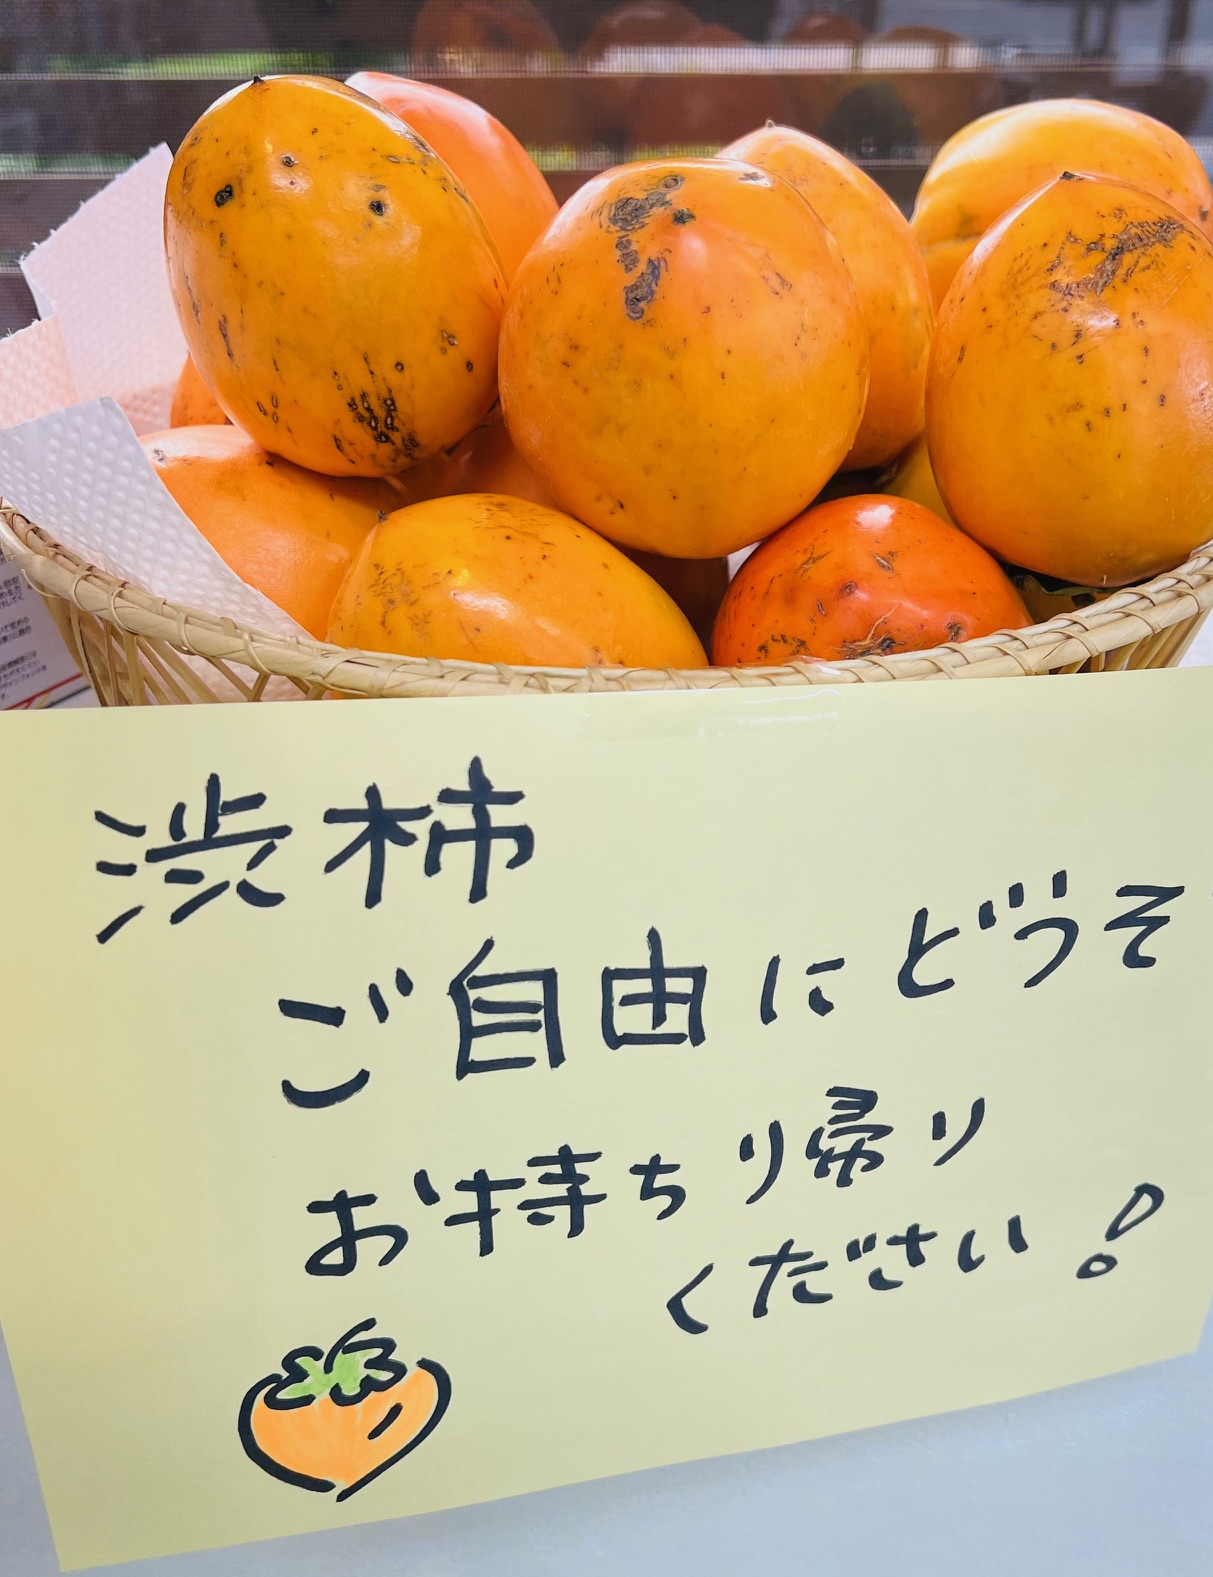 渋柿
ご自由にどうぞ
お持ち帰り
ください!